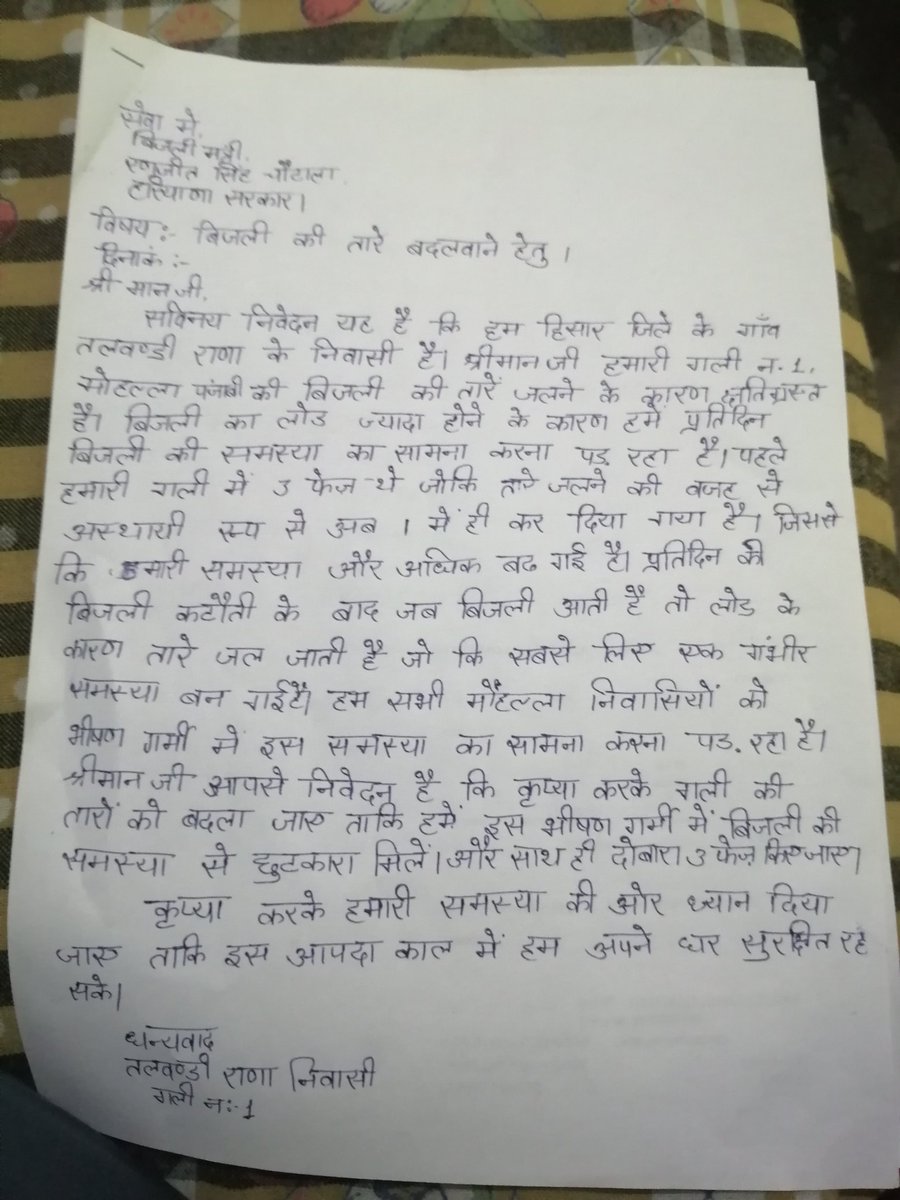 सेवा मे,
बिजली मंत्री,
रणजीत सिंह चौटाला,
हरियाणा सरकार।
विषय:- बिजली की तारे बदलवाने हेतु।
दिनाकं :-
श्री मान जी,
सविनय निवेदन यह है कि हम हिसार जिले के गाँव
तलवण्डी राणा के निवासी है। श्रीमान जी हमारी गली न. 1,
मोहल्ला पंजाबी की बिजली की तारें जलने के कारण क्षतिग्रस्त
है। बिजली का लोड ज्यादा होने के कारण हमें प्रतिदिन
बिजली की समस्या का सामना करना पड़ रहा है। पहले
हमारी गली में 3 फेज थे जोकि तारे जलने की वजह से
अस्थायी रूप से अब 1 में ही कर दिया गया है। जिससे
कि हमारी समस्या और अधिक बढ गई है। प्रतिदिन की
बिजली कटौती के बाद जब बिजली आती है तो लोड के
कारण तारे जल जाती है जो कि सबसे लिए एक गंभीर
समस्या बन गई है। हम सभी मौहल्ला निवासियों को
भीषण गर्मी में इस समस्या का सामना करना पड. रहा है।
श्रीमान जी आपसे निवेदन है कि कृप्या करके गली की
तारों को बदला जाए ताकि हमें इस भीषण गर्मी में बिजली की
समस्या से छुटकारा मिलें। और साथ ही दोबारा 3 फेज़ किए जाए।
कृप्या करके हमारी समस्या की ओर ध्यान दिया
जाए ताकि इस आपदा काल में हम अपने घर सुरक्षित रह
सके।
धन्यवाद
तलवण्डी राणा निवासी
गली न:-1